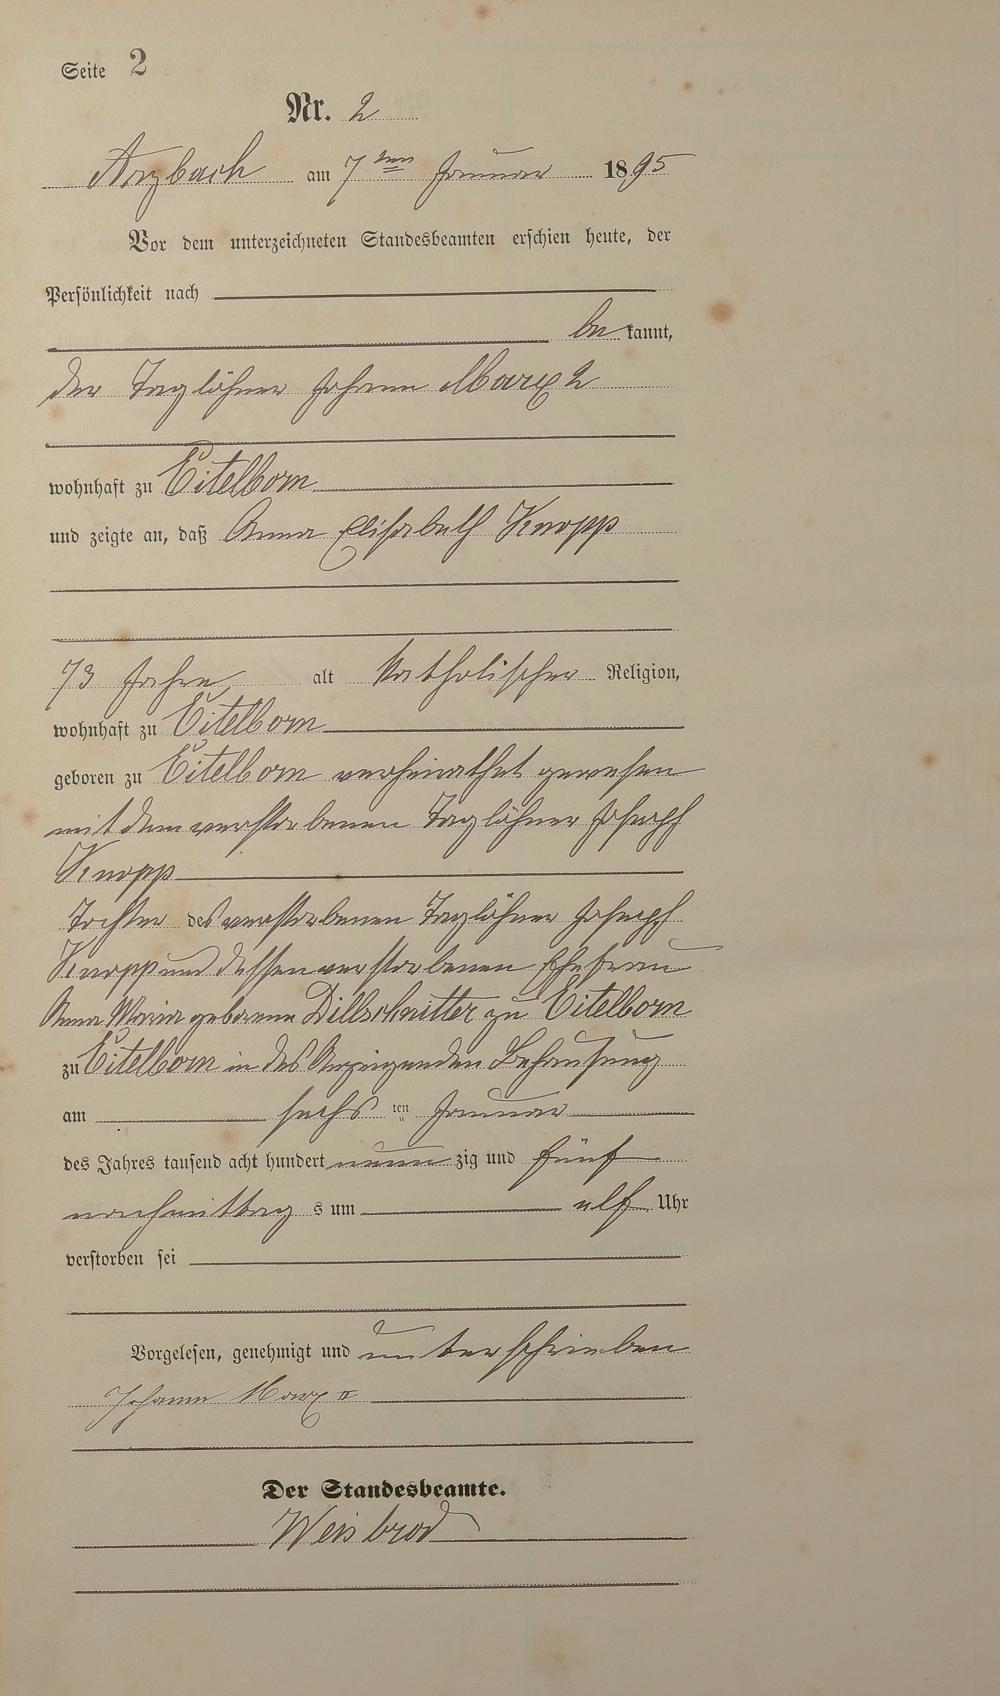 Seite 2
Nr. 2
Arzbach am 7ten Januar 1895
Vor dem unterzeichneten Standesbeamten erschien heute, der
Persönlichkeit nach
be kannt,
der Taglöhner Johann Marx 2
wohnhaft zu Eitelborn
und zeigte an, daß Anna Elisabeth Knopp
73 Jahre, alt katholischer Religion,
wohnhaft zu Eitelborn
geboren zu Eitelborn verheirathet gewesen
mit dem verstorbenen Taglöhner Joseph
Knopp
Tochter des verstorbenen Taglöhner Joseph
Knopp und dessen verstorbenen Ehefrau
Anna Maria geborene Dillschnitter zu Eitelborn
zu Eitelborn in des Anzeigenden Behausung
am sechsten Januar
des Jahres tausend acht hundert neunzig und fünf
nachmittags um elf Uhr
verstorben sei
Vorgelesen, genehmigt und unterschrieben
Johann Marx II
Der Standesbeamte.
Weisbrod